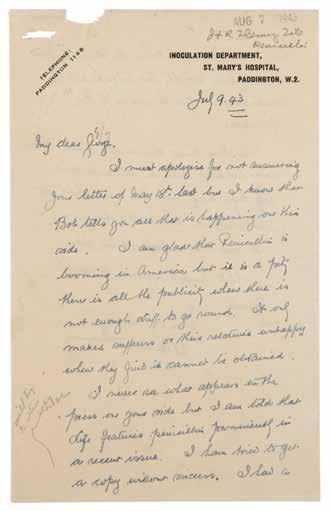 AUG 7 1943
Penicillin
TELEPHONE,
PADDINGTON 1146
INOCULATION DEPARTMENT,
ST. MARY'S HOSPITAL,
PADDINGTON, W.2.
July 9. 43
My dear
I must apologise for not answering
your letter of May 18th. last but I know that
Bob tells you all that is happening on this
side. I am glad that Penicillin is
booming in America but it is a pity
there is all the publicity when there is
not enough stuff to go round. It only
makes sufferers or their relatives unhappy
when they find it cannot be obtained.
I never see what appears in the
press on your side but I am told that
Life features penicillin prominently in
a recent issue. I have tried to get
a copy without success. I had a